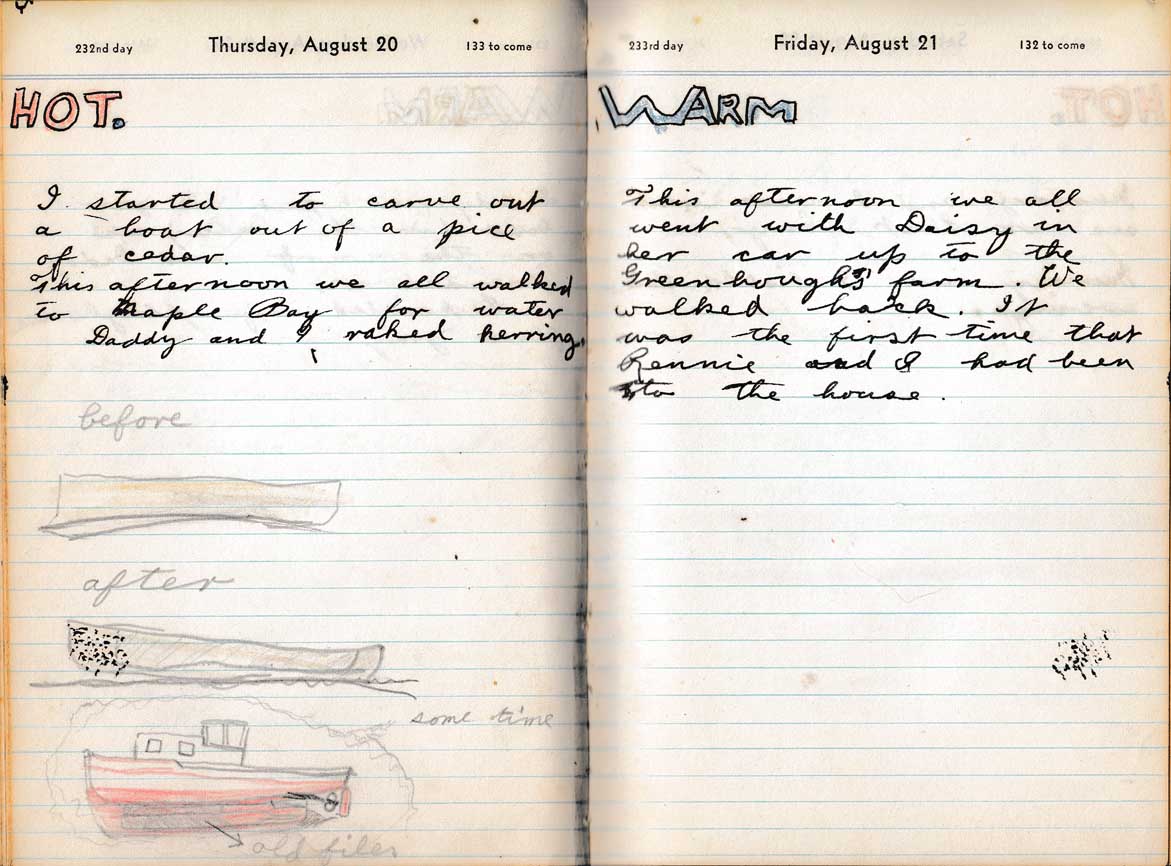 232nd day Thursday, August 20 133 to come
HOT.
I started to carve out
a boat out of a pice
of cedar.
This afternoon we all walked
to Maple Bay for water
Daddy and I raked herring.
before
after
some time
old files
233rd day Friday, August 21 132 to come
WARM
This afternoon we all
went with Daisy in
her car up to the
Greenhough's farm. We
walked back. It
was the first time that
Rennie and I had been
to the house.